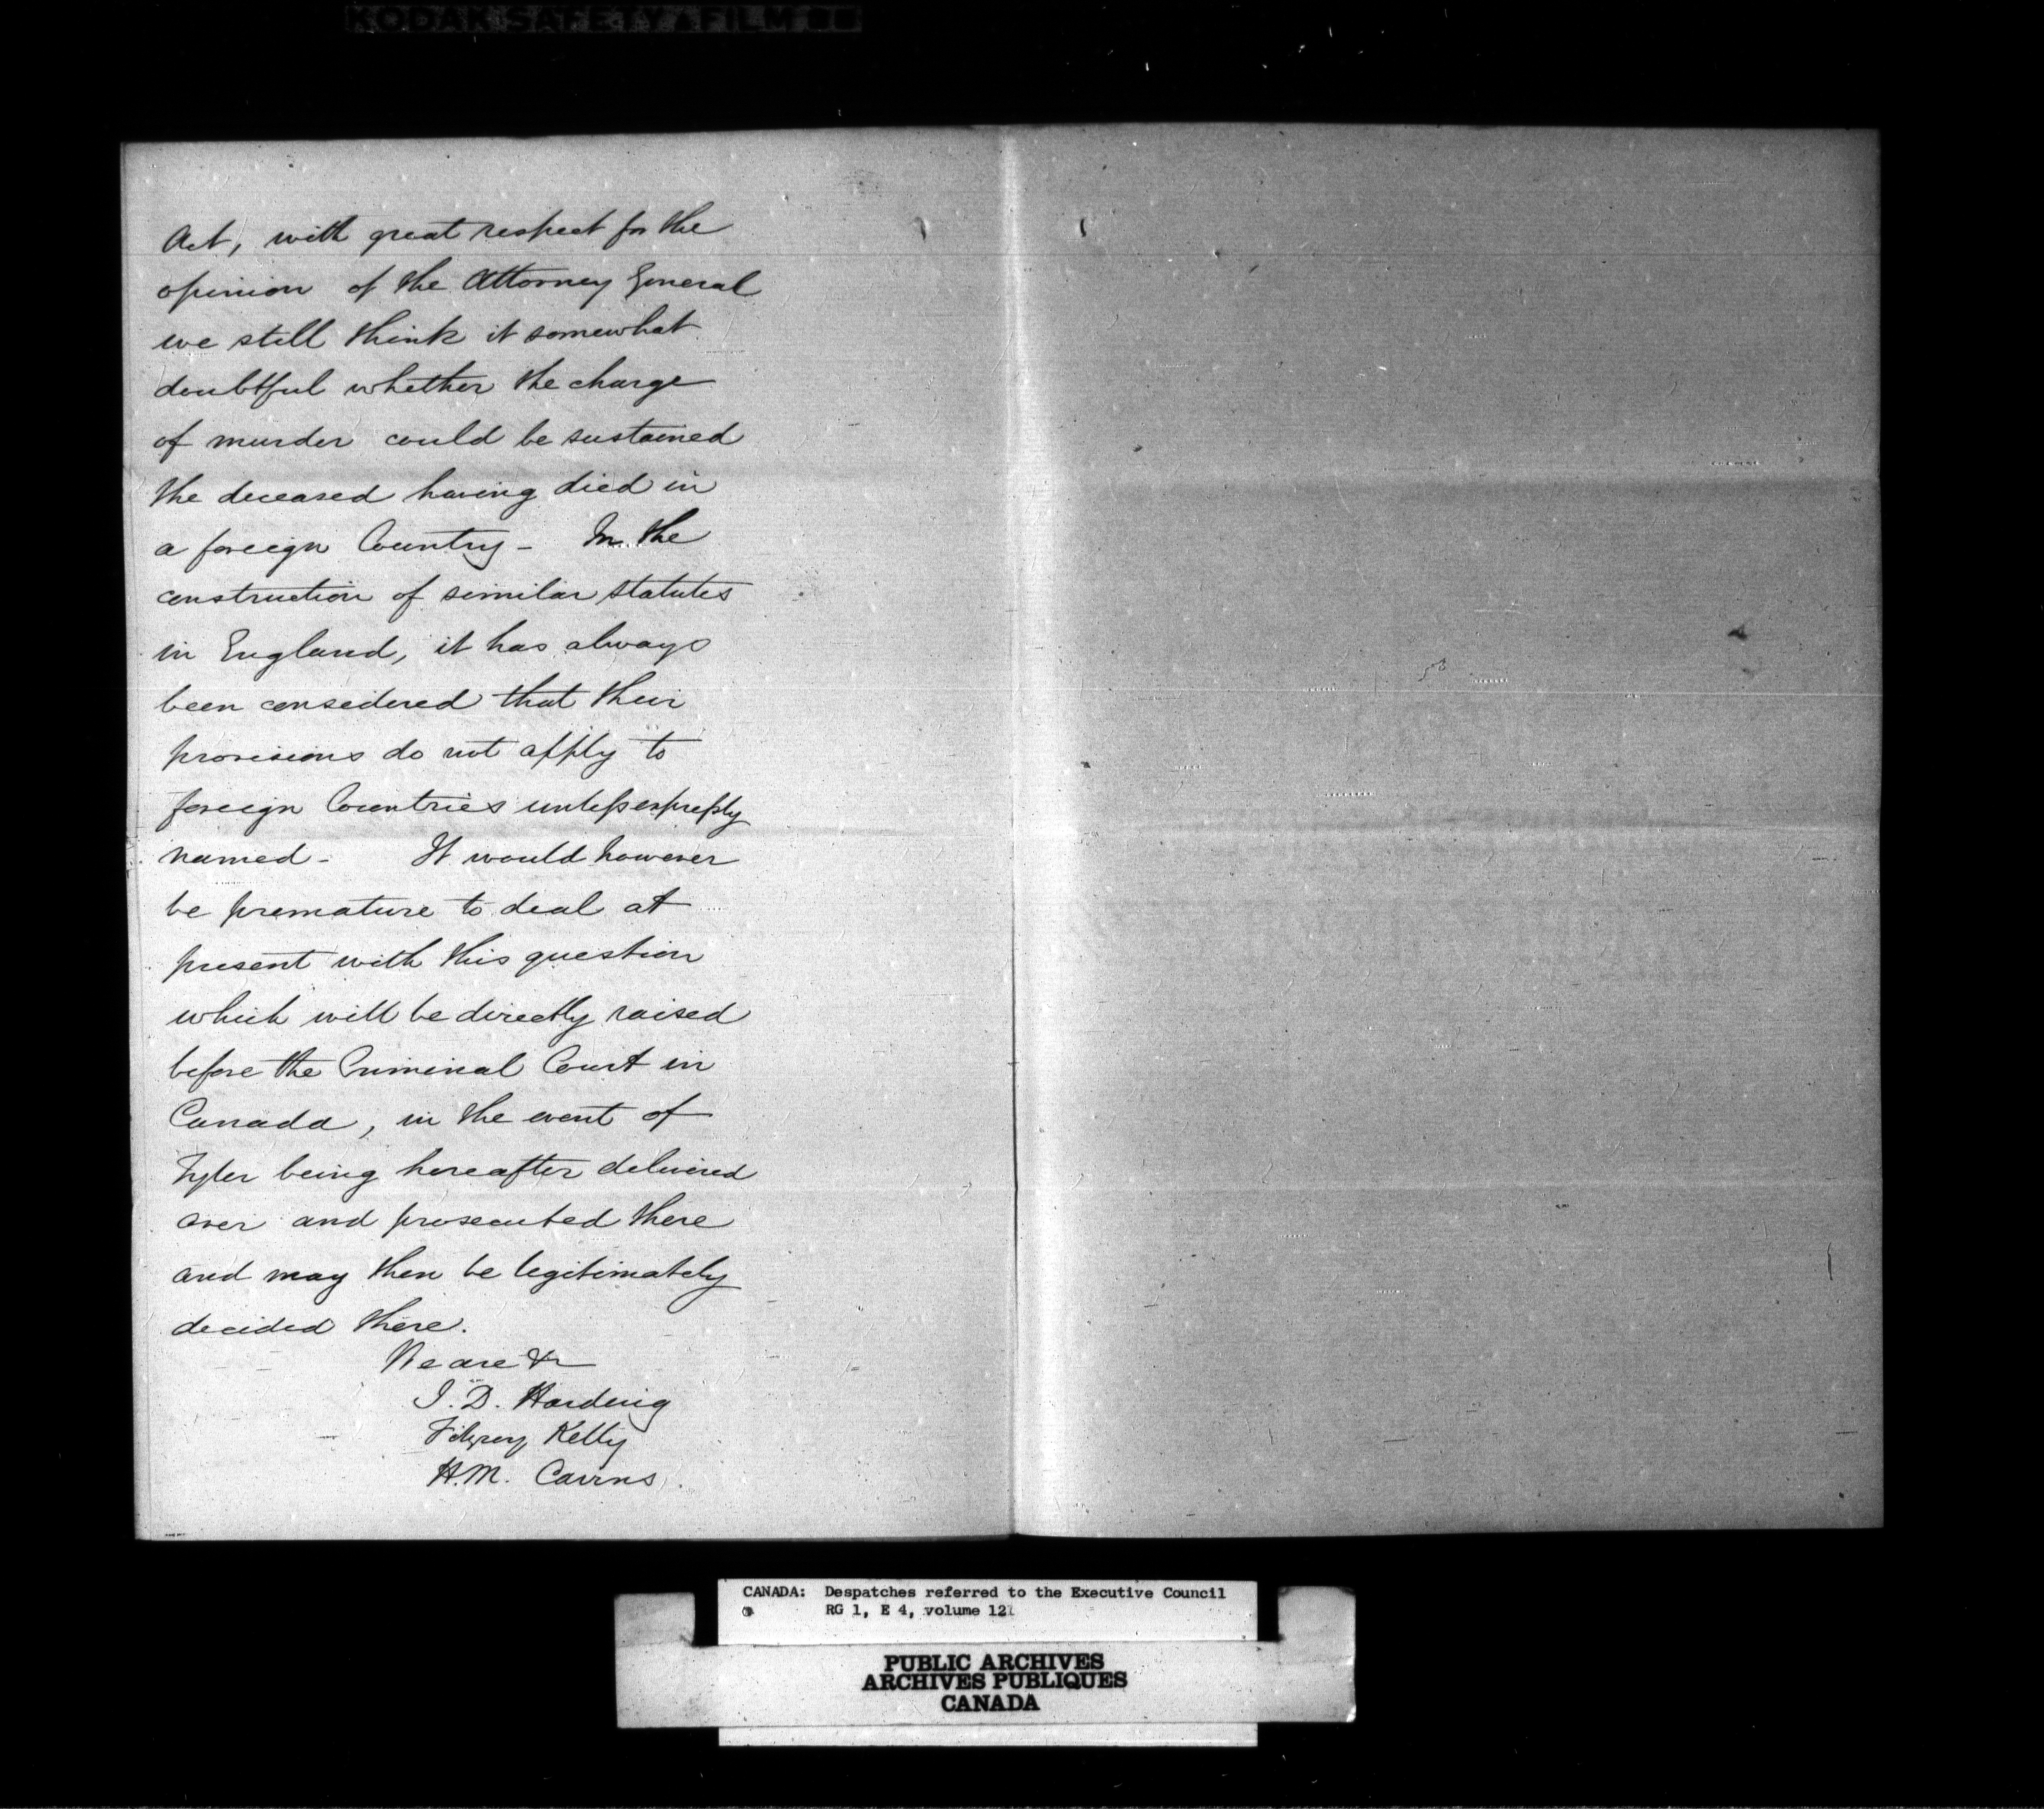 KODAK SAFETY FILM
Act, with great respect for the
opinion of the Attorney General
we still think it somewhat
doubtful whether the charge
of murder could be sustained
the deceased having died in
a foreign Country - In the
construction of similar statutes
in England, it has always
been considered that their
provisions do not apply to
foreign Countries unless expressly
named - It would however
be premature to deal at
present with this question
which will be directly raised
before the Criminal Court in
Canada, in the event of
Tyler being hereafter delivered
over and prosecuted there
and may then be legitimately
decided there.
We are &c
J. D. Harding
Fitzroy Kelly
H.M. Cairns.
CANADA: Despatches referred to the Executive Council
RG 1, E 4, volume 12
PUBLIC ARCHIVES
ARCHIVES PUBLIQUES
CANADA